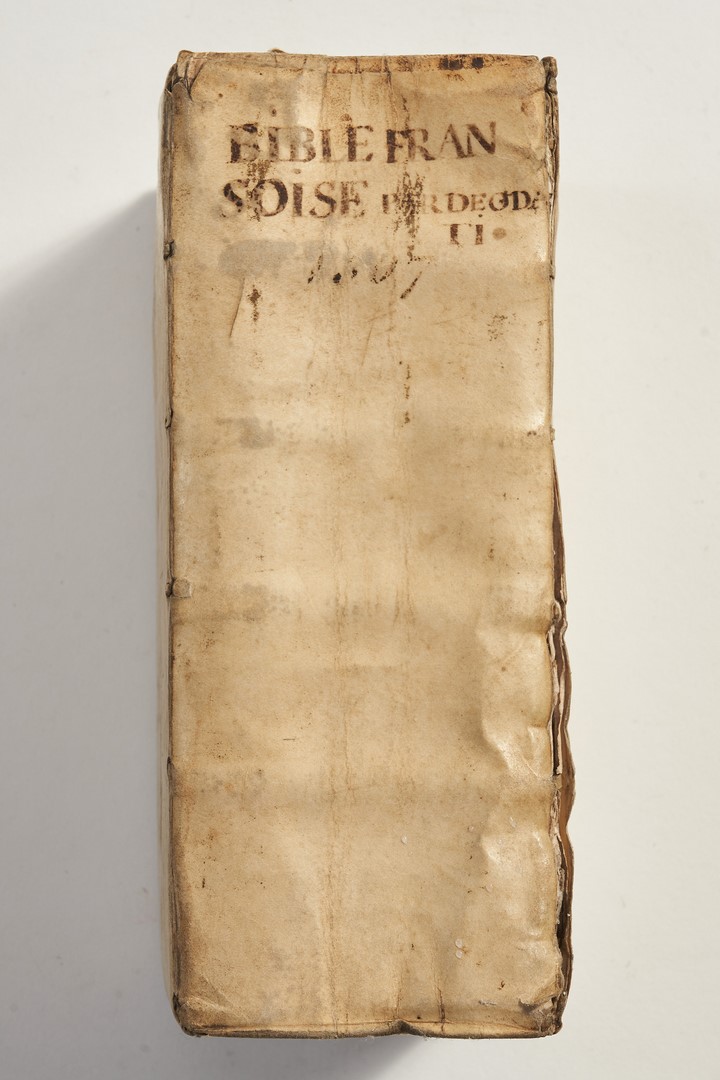 BIBLE FRAN
SOISE PAR DEODA
TI.